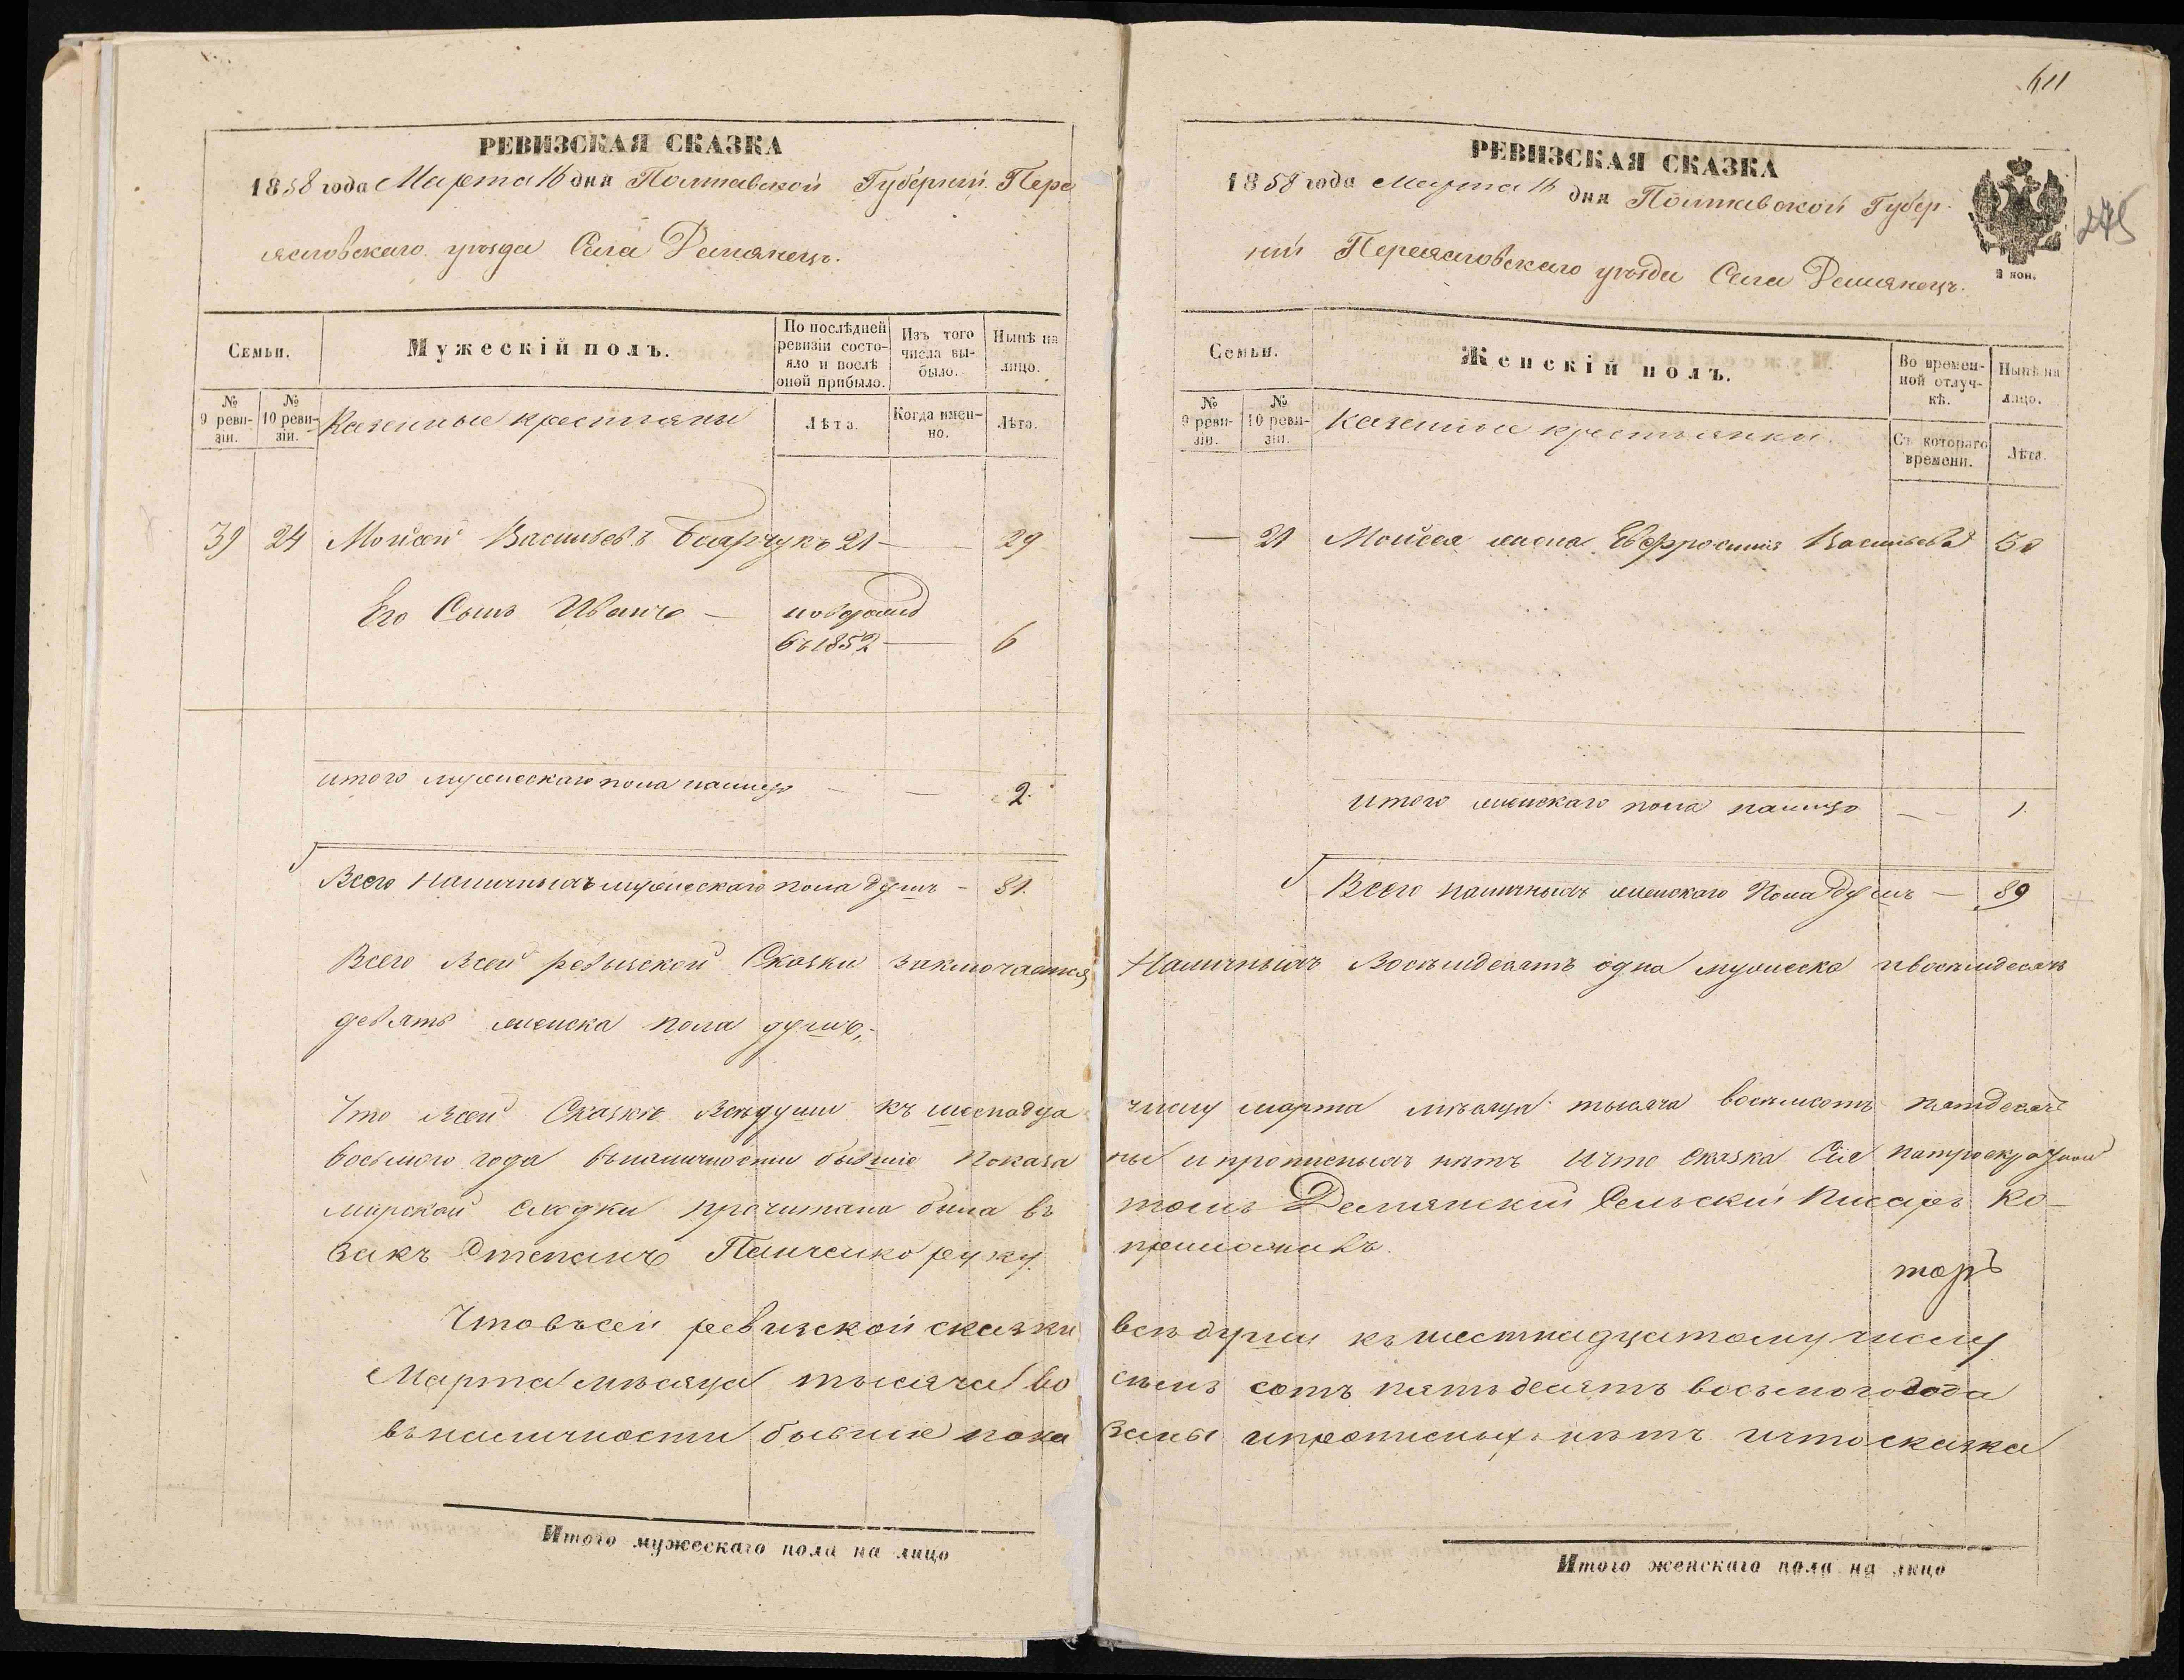 РЕВИЗСКАЯ СКАЗКА
1858 года Марта 16 дня Полтавской Губерніи Пере
яславскаго уѣзда Села Демянецъ.
Семьи.
Мужескій полъ.
По послѣдней ревизіи состояло и послѣ оной прибыло.
Изъ того числа выбыло.
Нынѣ на лицо.
№ 9 ревизіи.
№ 10 ревизіи.
Казенные крестьяны
Лѣта.
Когда именно.
Лѣта.
39 24 Мойсей Васильевъ Боярчукъ 21 — 29
Его Сынъ Иванъ — новорожд
въ 1852 — 6
итого мужескаго пола налицо — — 2.
Всего Наличныхъ мужескаго пола душъ - 81.
Всего Всей ревизской Сказки заключается
девять женска пола душъ,-
Что Всей Сказкѣ Всѣ души къ шеснадца
восьмого года въ наличности бывшіе Показа
мирской сходки прочитана была въ
закъ Степанъ Панченко руку
Что въ сей ревизской сказки
Марта мѣсяца тысяча во
въ наличности бывшіе пока
Итого мужескаго пола на лицо
611
РЕВИЗСКАЯ СКАЗКА
1858 года Марта 16 дня Полтавской Губер-
ніи Переяславскаго уѣзда Села Демянецъ.
3 коп.
275
Семьи.
Женскій полъ.
Во временной отлучкѣ.
Нынѣ на лицо.
№ 9 ревизіи.
№ 10 ревизіи.
Казенные крестьянки.
Съ котораго времени.
Лѣта.
— 21 Мойсея жена Евфросинія Васильева 50
итого женскаго пола налицо — — 1.
Всего наличныхъ женскаго Пола Душъ — 89
Наличныхъ Восьмдесятъ одна мужеска и восьмдесятъ
числу марта мѣсяца тысяча восьмисотъ пятдесятъ
ны и прописныхъ нѣтъ и что сказка Сія
томъ Демянскій Сельскій Писарь Ко-
приложилъ.
торъ
всѣ души къ шестнадцатому числу
съемъ сотъ пятьдесятъ восьмого года
заны и прописныхъ нѣтъ и что сказка
Итого женскаго пола на лицо